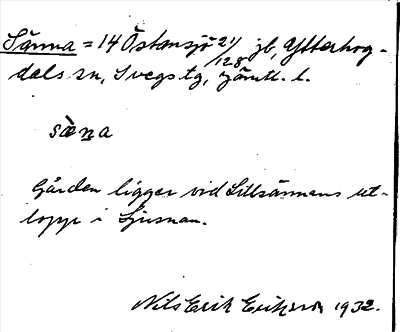 Sänna = 14 Östansjö 21/128 jb, Ytterhog-
dals sn, Svegs tg, Jämtl. l.
sæ̀na
Gården ligger vid Lillsännans ut-
lopp i Ljusnan.
Nils Erik Eriksson 1932.